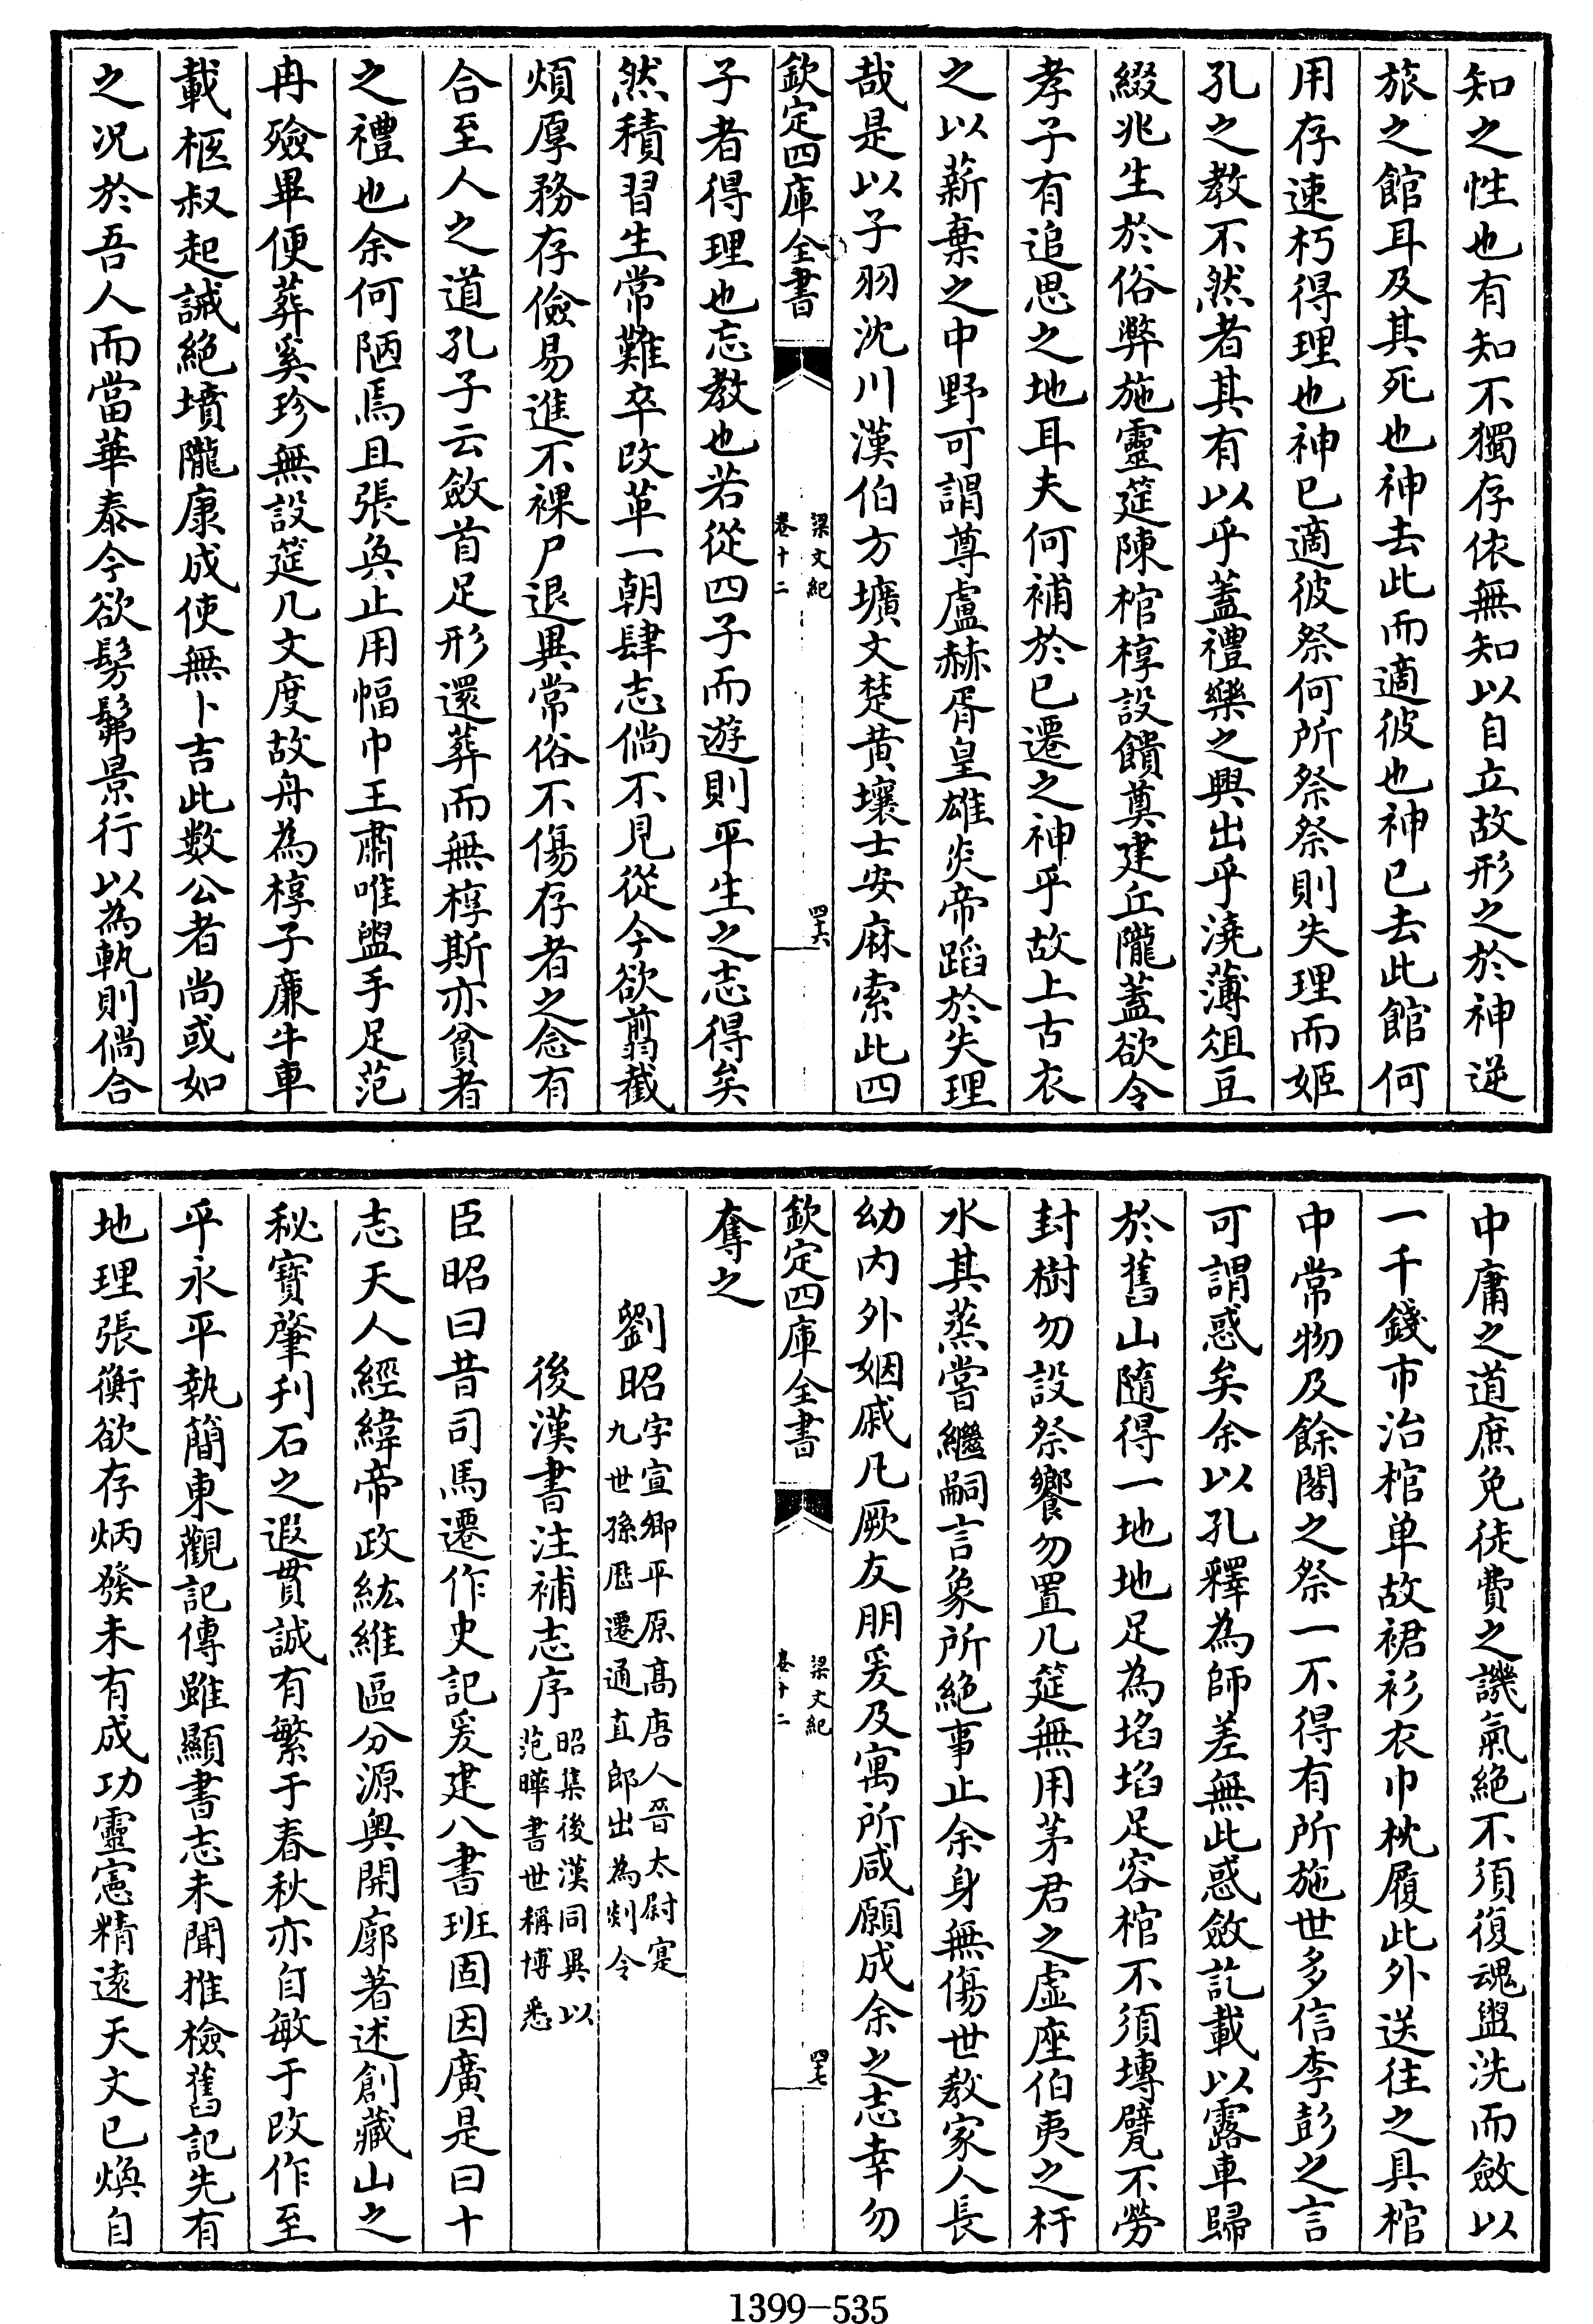 知之性也有知不獨存依無知以自立故形之於神逆
旅之館耳及其死也神去此而適彼也神已去此館何
用存速朽得理也神已適彼祭何所祭祭則失理而姬
孔之教不然者其有以乎蓋禮樂之興出乎澆薄俎豆
綴兆生於俗弊施靈筵陳棺椁設饋奠建丘隴蓋欲令
孝子有追思之地耳夫何補於已遷之神乎故上古衣
之以薪棄之中野可謂尊盧赫胥皇雄炎帝蹈於失理
哉是以子羽沈川漢伯方壙文楚黄壤士安麻索此四
欽定四庫全書
梁文紀
卷十二
四六
子者得理也忘教也若從四子而遊則平生之志得矣
然積習生常難卒改革一朝肆志倘不見從今欲翦截
煩厚務存儉易進不裸尸退異常俗不傷存者之念有
合至人之道孔子云斂首足形還葬而無椁斯亦貧者
之禮也余何陋焉且張奐止用幅巾王肅唯盥手足范
冉殮畢便葬奚珍無設筵几文度故舟為椁子廉牛車
載柩叔起誡絶墳隴康成使無卜吉此数公者尚或如
之况於吾人而當華泰今欲髣髴景行以為軌則倘合
中庸之道庶免徒費之譏氣絶不須復魂盥洗而斂以
一千錢市治棺单故裙衫衣巾枕履此外送往之具棺
中常物及餘閣之祭一不得有所施世多信李彭之言
可謂惑矣余以孔釋為師差無此惑斂訖載以露車歸
於舊山隨得一地地足為埳埳足容棺不須塼甓不勞
封樹勿設祭饗勿置几筵無用茅君之虛座伯夷之杅
水其蒸嘗繼嗣言象所絶事止余身無傷世教家人長
幼内外姻戚凡厥友朋爰及寓所咸願成余之志幸勿
欽定四庫全書
梁文紀
卷十二
四七
奪之
劉昭字宣卿平原高唐人晉太尉寔
九世孫歴遷通直郎出為剡令
後漢書注補志序昭集後漢同異以
范曄書世稱博悉
臣昭曰昔司馬遷作史記爰建八書班固因廣是曰十
志天人經緯帝政紘維區分源奥開廓著述創藏山之
秘寳肇刋石之遐貫誠有繁于春秋亦自敏于改作至
平永平執簡東觀記傳雖顯書志未聞推檢舊記先有
地理張衡欲存炳發未有成功靈憲精遠天文已煥自
1399-535